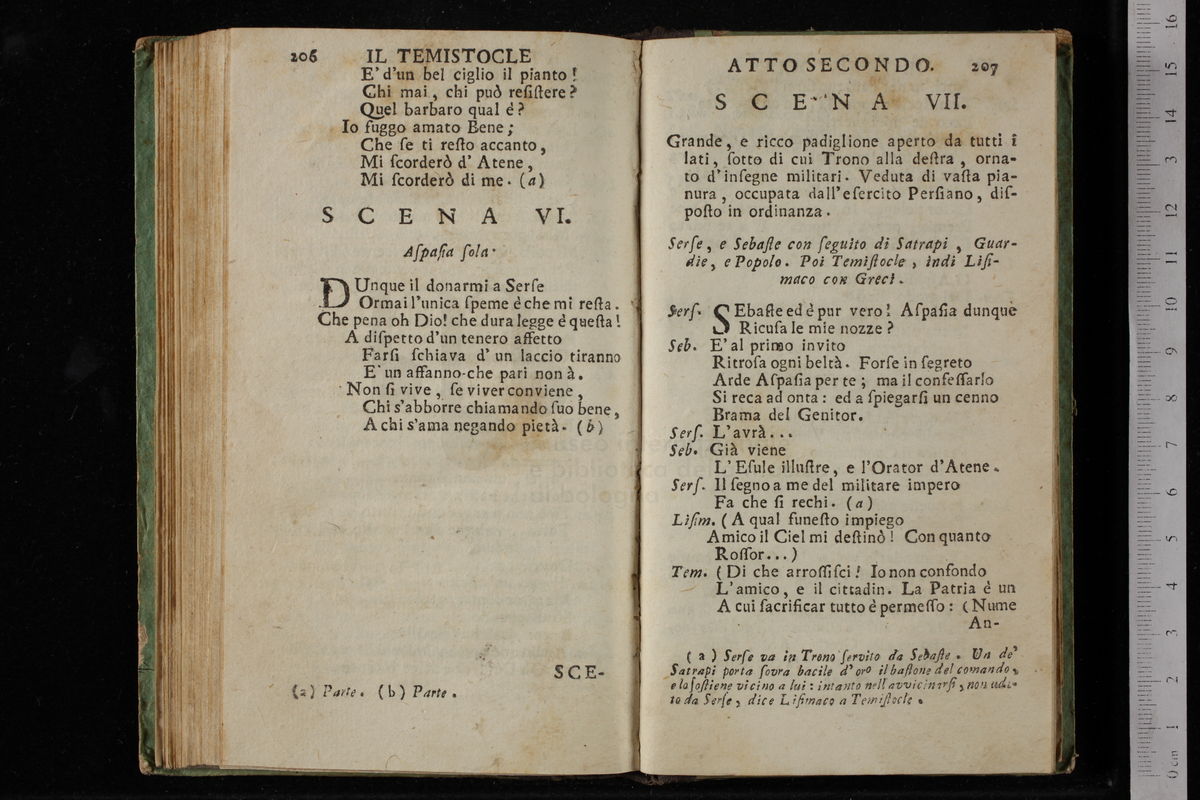 206 IL TEMISTOCLE
E' d'un bel ciglio il pianto!
Chi mai, chi può reſiſtere?
Quel barbaro qual è?
Io fuggo amato Bene;
Che ſe ti reſto accanto,
Mi ſcorderò d' Atene,
Mi ſcorderò di me. (a)
SCENA VI.
Aſpaſia ſola.
DUnque il donarmi a Serſe
Ormai l'unica ſpeme è che mi reſta.
Che pena oh Dio! che dura legge è queſta!
A diſpetto d'un tenero affetto
Farſi ſchiava d' un laccio tiranno
E' un affanno che pari non à.
Non ſi vive, ſe viver conviene,
Chi s'abborre chiamando ſuo bene,
A chi s'ama negando pietà. (b)
SCE-
(a) Parte. (b) Parte.
ATTO SECONDO. 207
SCENA VII.
Grande, e ricco padiglione aperto da tutti i
lati, ſotto di cui Trono alla deſtra, orna-
to d'inſegne militari. Veduta di vaſta pia-
nura, occupata dall'eſercito Perſiano, diſ-
poſto in ordinanza.
Serſe, e Sebaſte con ſeguito di Satrapi, Guar-
die, e Popolo. Poi Temiſtocle, indi Liſi-
maco con Greci.
Serſ. SEbaſte ed è pur vero! Aſpaſia dunque
Ricuſa le mie nozze?
Seb. E' al primo invito
Ritroſa ogni beltà. Forſe in ſegreto
Arde Aſpaſia per te; ma il confeſſarlo
Si reca ad onta: ed a ſpiegarſi un cenno
Brama del Genitor.
Serſ. L'avrà...
Seb. Già viene
L' Eſule illuſtre, e l'Orator d'Atene.
Serſ. Il ſegno a me del militare impero
Fa che ſi rechi. (a)
Liſim. (A qual funeſto impiego
Amico il Ciel mi deſtinò! Con quanto
Roſſor...)
Tem. (Di che arroſſiſci! Io non confondo
L'amico, e il cittadin. La Patria è un
A cui ſacrificar tutto è permeſſo: (Nume
An-
(a) Serſe va in Trono ſervito da Sebaſte. Un de'
Satrapi porta ſovra bacile d'oro il baſtone del comando,
e lo ſoſtiene vicino a lui: intanto nell'avvicinarſi, non udi-
to da Serſe, dice Liſimaco a Temiſtocle.